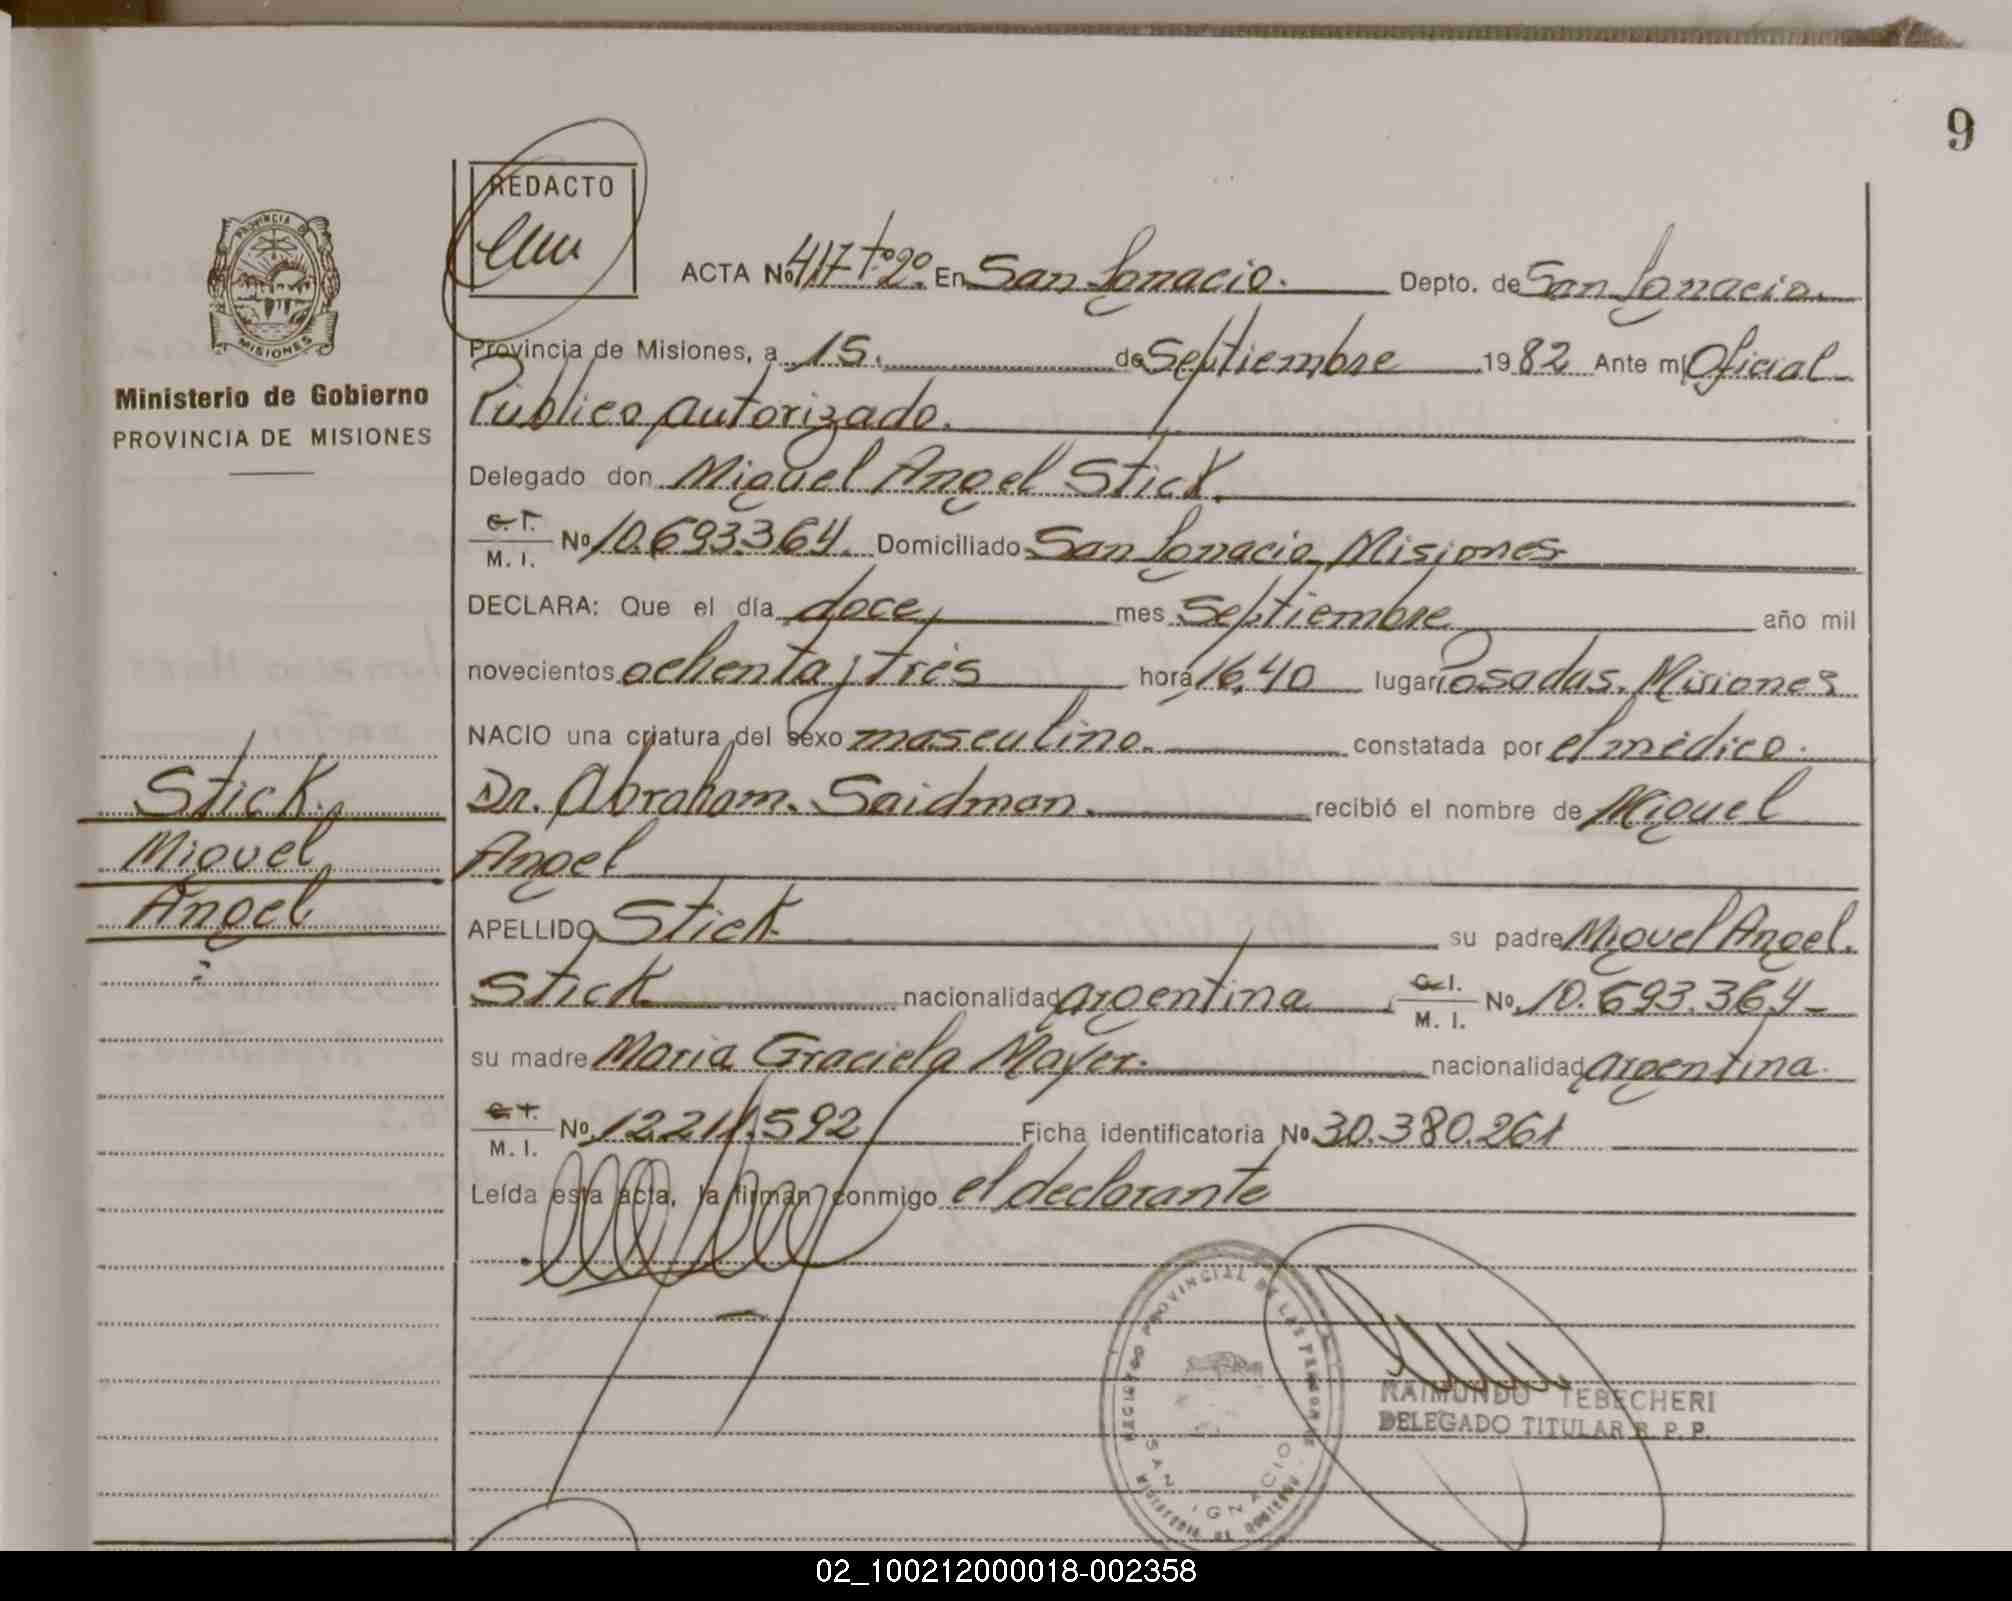 9
REDACTO
PROVINCIA DE
MISIONES
Ministerio de Gobierno
PROVINCIA DE MISIONES
ACTA Nº 417 tº 2º. En San Ignacio. Depto. de San Ignacio.
Provincia de Misiones, a 15. de Septiembre 1982 Ante mí Oficial
Público autorizado.
Delegado don Miguel Angel Stick.
C. I. / M. I. Nº 10.693.364. Domiciliado San Ignacio Misiones
DECLARA: Que el día doce, mes Septiembre año mil
novecientos ochenta y tres hora 16,40 lugar Posadas. Misiones
NACIO una criatura del sexo masculino. constatada por el médico.
Dr. Abraham. Saidman. recibió el nombre de Miguel
Angel
APELLIDO Stick su padre Miguel Angel.
Stick nacionalidad argentina C. I. / M. I. Nº 10.693.364-
su madre Maria Graciela Mayer. nacionalidad argentina.
C. I. / M. I. Nº 12.211.592 Ficha identificatoria Nº 30.380.261
Leída esta acta, la firman conmigo el declarante
Stick.
Miguel
Angel
REGISTRO PROVINCIAL DE LAS PERSONAS
SAN IGNACIO
MINISTERIO DE GOBIERNO
RAIMUNDO TEBECHERI
DELEGADO TITULAR R. P. P.
02_100212000018-002358